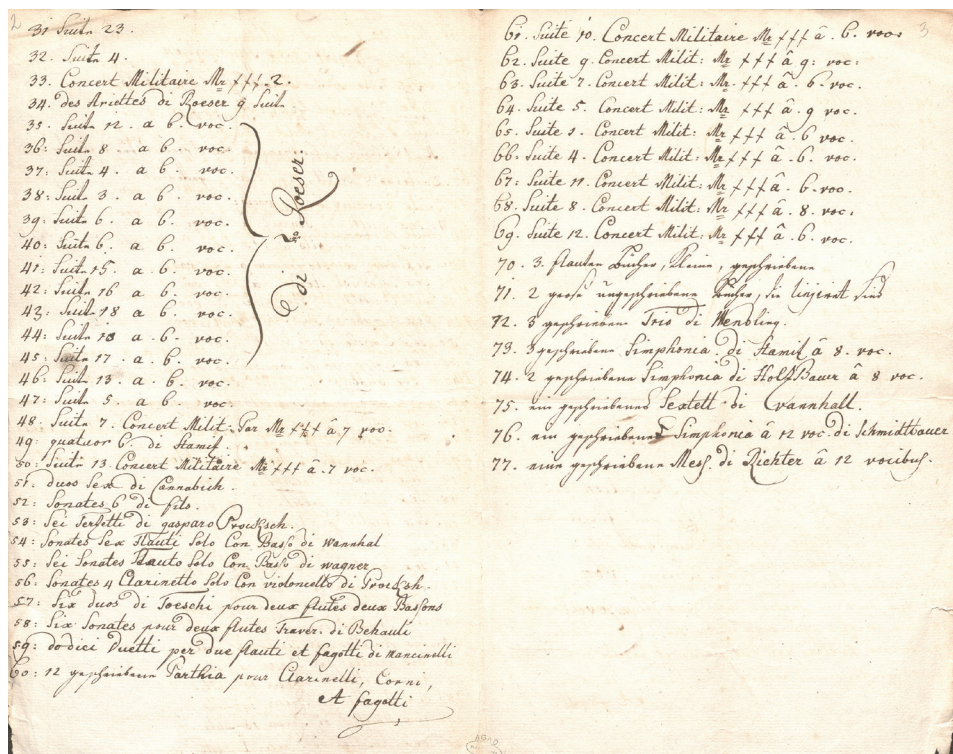 2
31 Suite 23.
32. Suite 4.
33. Concert Militaire Mr fff. 2.
34. des Ariettes di Roeser 9 Suite
35. Suite 12. a 6. voc.
36: Suite 8. a 6. voc.
37: Suite 4. a 6. voc.
38: Suite 3. a 6. voc.
39: Suite 6. a 6. voc.
40: Suite 6. a 6. voc.
41: Suite 15. a 6. voc.
42: Suite 16 a 6. voc.
43: Suite 18 a 6. voc.
44: Suite 10 a 6. voc.
45: Suite 17. a 6. voc.
di Roeser.
46: Suite 13. a 6. voc.
47: Suite 5. a 6. voc.
48: Suite 7. Concert Milit: Par Mr fff â 7 voc.
49: quatuor 6. di Stamitz
50: Suite 13. Concert Militaire Mr fff â. 7 voc.
51: duos Sex di Cannabich.
52: Sonates 6 di fils.
53: Sei Terfetti di gasparo Procksch.
54: Sonates Sex Flauti Solo Con Basso di Wannhal
55: Sei Sonates Flauto Solo Con Basso di wagner
56: Sonates 4 Clarinetto Solo Con violoncello di Procksch.
57: Six duos di Toeschi pour deux flutes deux Bassons
58: Six Sonates pour deux flutes Traver. di Bekauli
59: dodici Duetti per due flauti et fagotti di Mancinelli
60: 12 geschriebene Parthia pour Clarinelli, Corni,
A fagotti
3
61. Suite 10. Concert Militaire Mr fff â. 6. voc.
62. Suite 9. Concert Milit: Mr fff â 9: voc:
63. Suite 7. Concert Milit: Mr. fff â. 6. voc.
64. Suite 5. Concert Milit: Mr fff â. 9 voc.
65. Suite 1. Concert Milit: Mr fff â. 6 voc.
66. Suite 4. Concert Milit: Mr fff â. 6. voc.
67: Suite 11. Concert Milit: Mr fff â. 6. voc.
68. Suite 8. Concert Milit: Mr fff â. 8. voc.
69. Suite 12. Concert Milit: Mr fff â. 6. voc.
70. 3. flauten Bücher, kleine, geschriebene
71. 2 große ungeschriebene Bücher, die linjirt sind
72. 3 geschriebene Trio di Wendling.
73. 3 geschriebene Simphonia di Stamitz â 8. voc.
74. 2 geschriebene Simphonia di HolzBauer â 8 voc.
75. ein geschriebenes Sextett di Wannhall.
76. ein geschriebenes Simphonia â 12 voc. di Schmidtbauer
77. eine geschriebene Mess. di Richter â 12 vocibus.